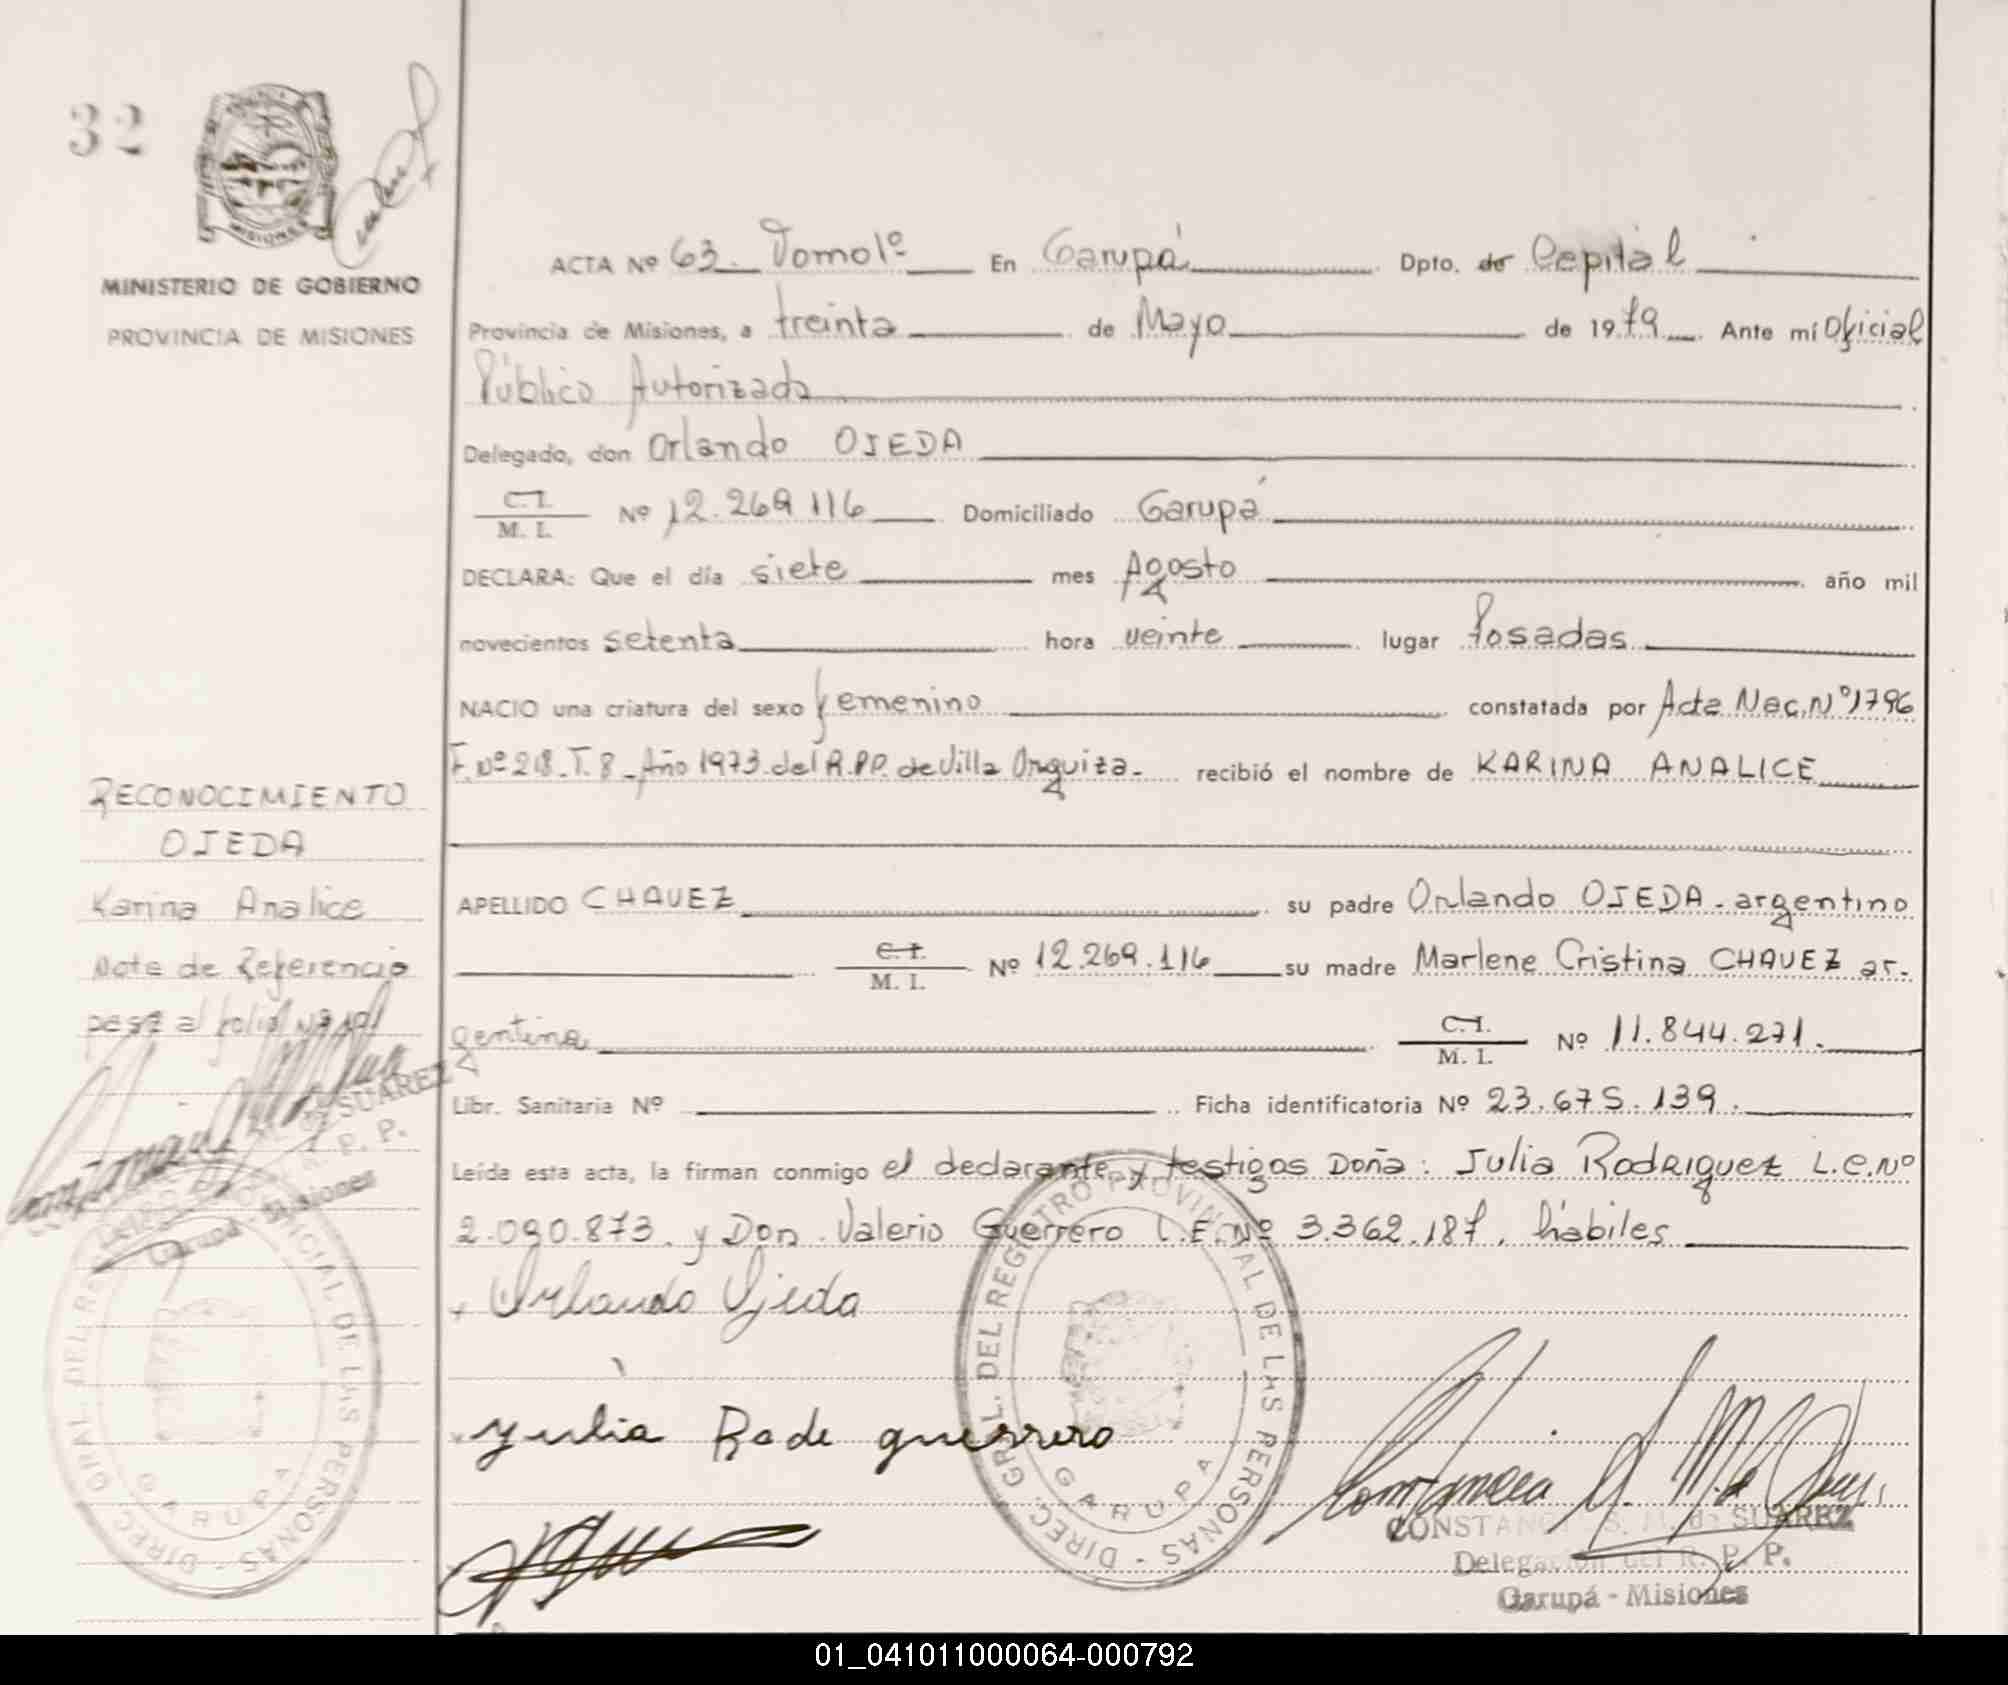 32
MISIONES
MINISTERIO DE GOBIERNO
PROVINCIA DE MISIONES
ACTA Nº 63. Tomo 1º En Garupá Dpto. de Capital
Provincia de Misiones, a treinta de Mayo de 1979 Ante mí Oficial
Público Autorizado
Delegado, don Orlando OJEDA
C.I.
M. I. Nº 12.269.116 Domiciliado Garupá
DECLARA: Que el día siete mes Agosto año mil
novecientos setenta hora veinte lugar Posadas
NACIO una criatura del sexo femenino constatada por Acta Nac. Nº 1796
F. Nº 218. T. 8 - Año 1973 del R.P.P. de Villa Urquiza. recibió el nombre de KARINA ANALICE
APELLIDO CHAVEZ su padre Orlando OJEDA - argentino
C.I.
M. I. Nº 12.269.116 su madre Marlene Cristina CHAVEZ ar-
gentina C.I.
M. I. Nº 11.844.271.
Libr. Sanitaria Nº Ficha identificatoria Nº 23.675.139.
Leída esta acta, la firman conmigo el declarante y testigos Doña: Julia Rodriguez L.E. Nº
2.090.873. y Don. Valerio Guerrero L.E. Nº 3.362.187. hábiles
Orlando Ojeda
Yulia R de guerrero
DIREC. GRL. DEL REGISTRO PROVINCIAL DE LAS PERSONAS -
GARUPA
S. M. de SUAREZ
Delegación del R. P. P.
Garupá - Misiones
RECONOCIMIENTO
OJEDA
Karina Analice
Nota de Referencia
pasa al folio
SUAREZ
R. P. P.
Garupá - Misiones
DIREC. GRAL. DEL OFICIAL DE LAS PERSONAS -
GARUPA
01_041011000064-000792